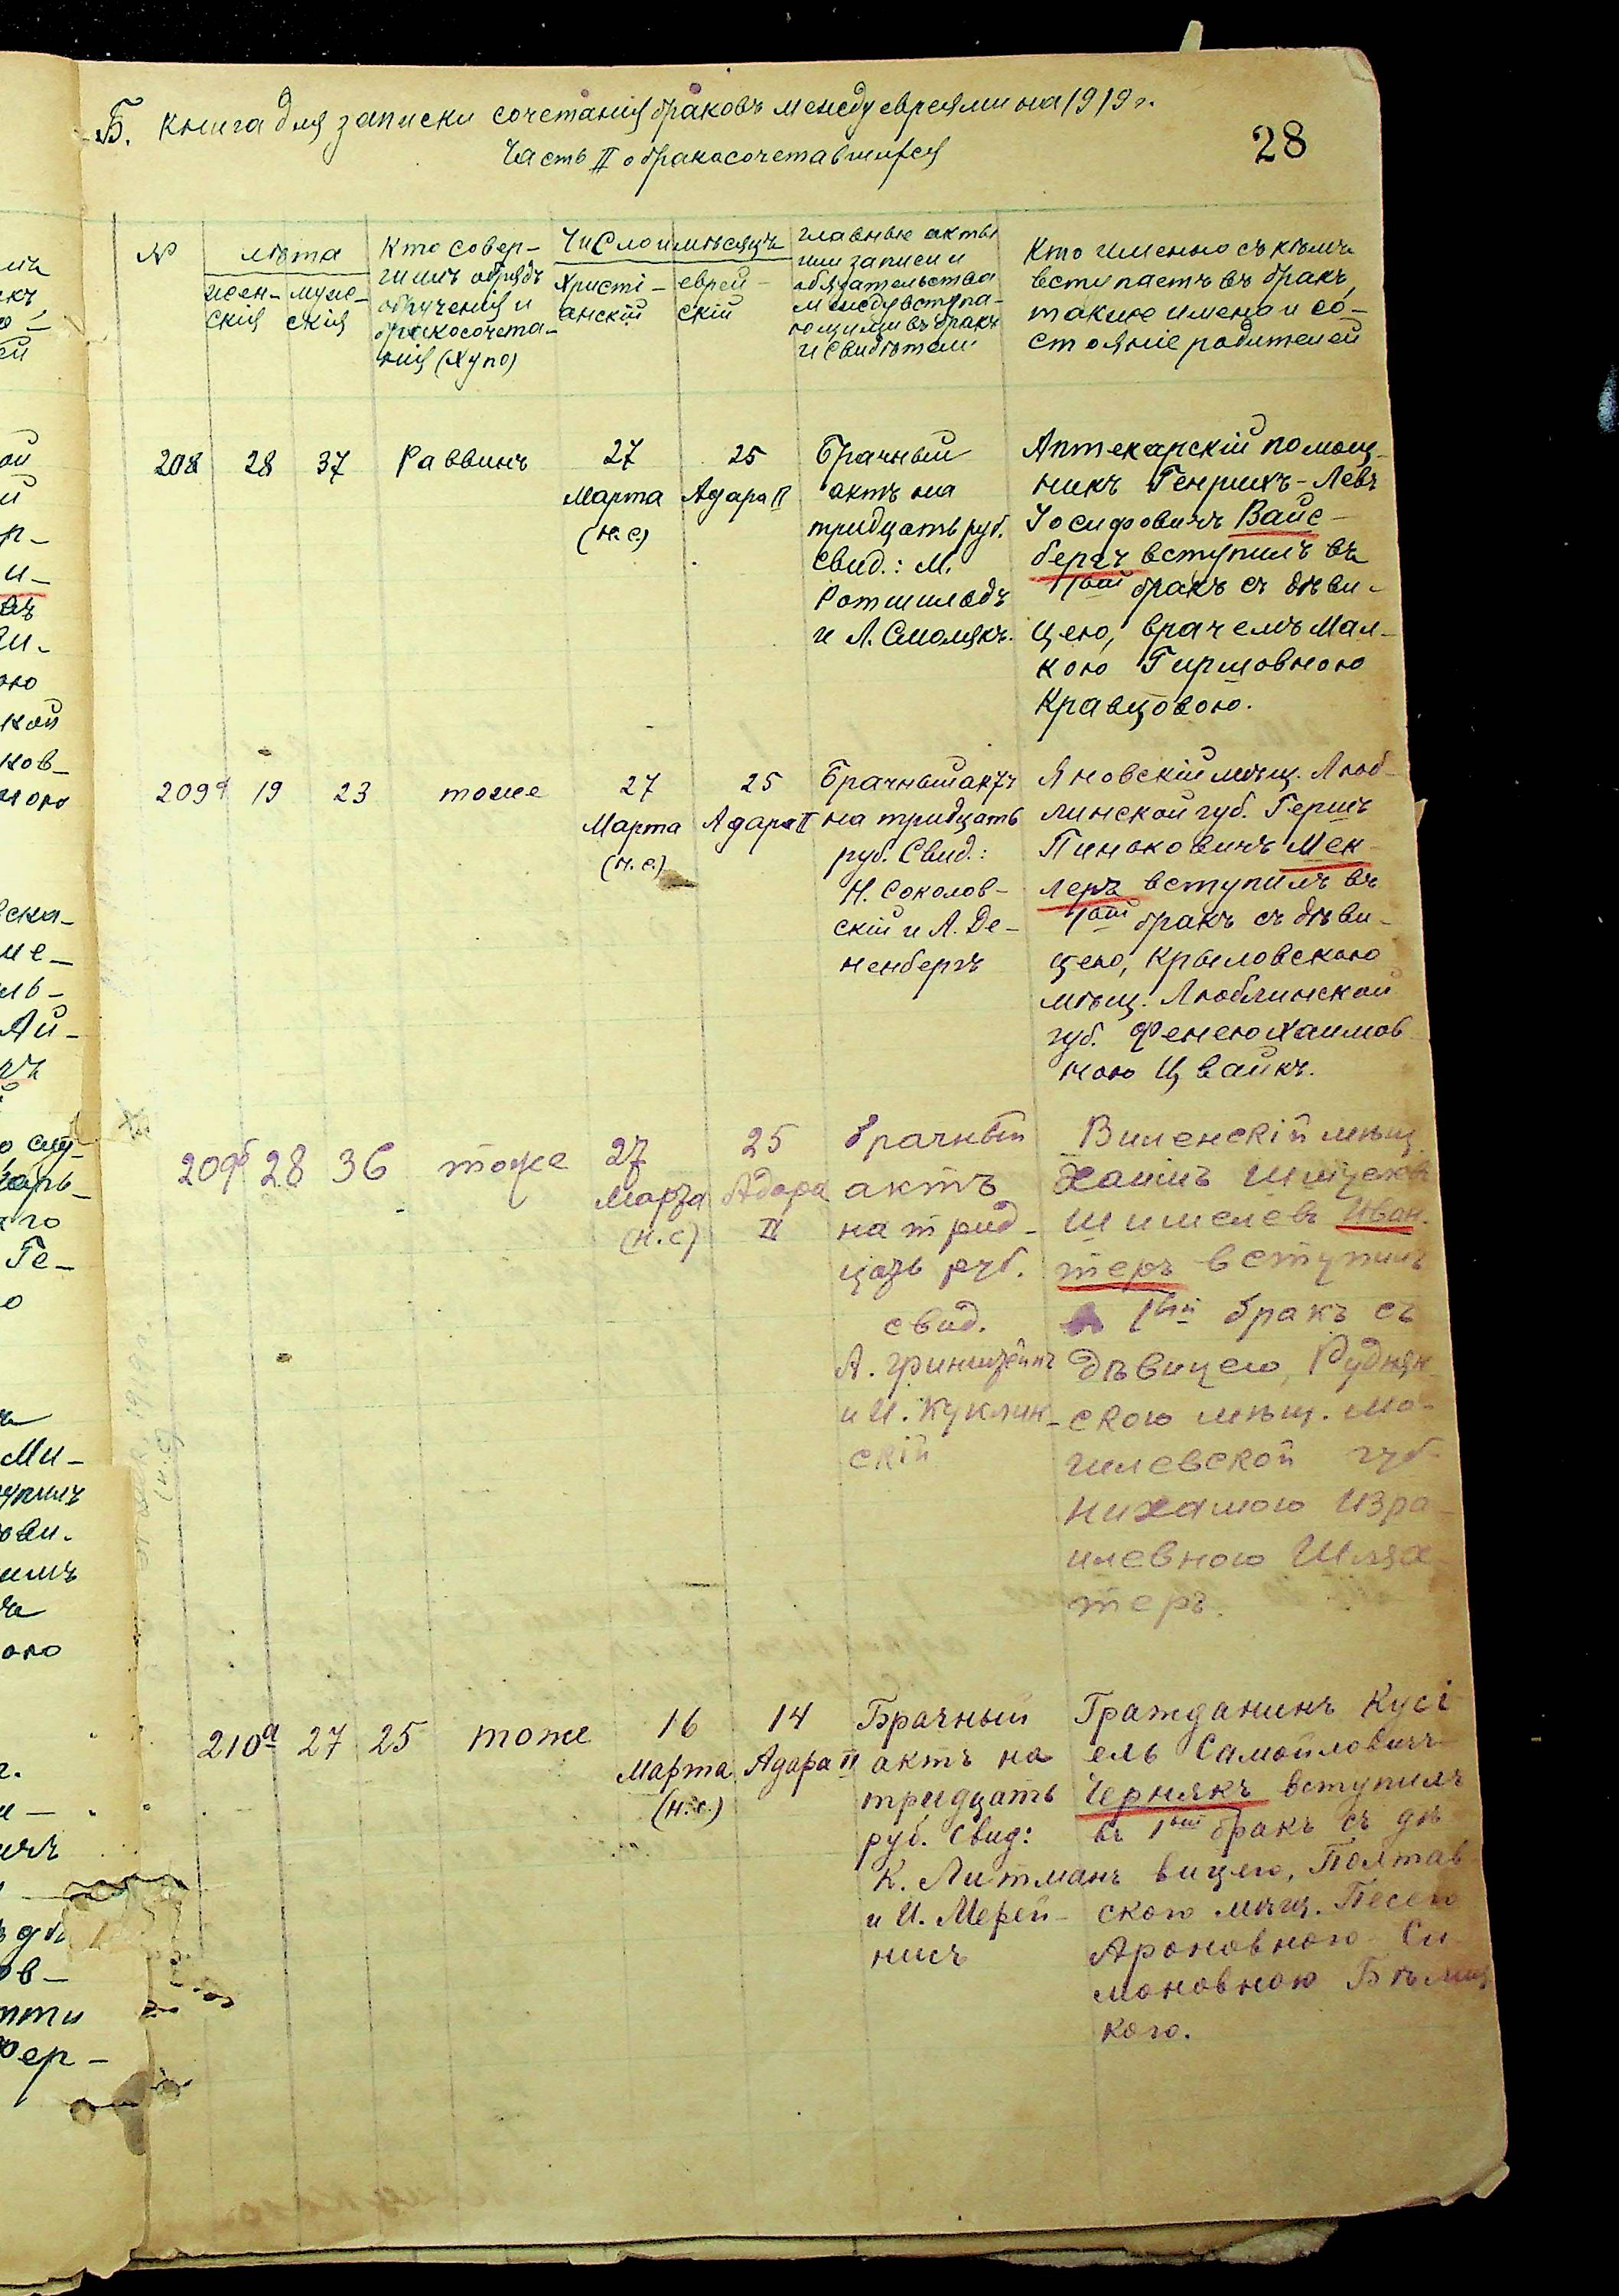 Б. Книга для записки сочетанія браковъ между евреями на 1919 г.
Часть II о бракосочетавшихся
28
№
лѣта
женскія
мужескія
Кто совер-
шилъ обрядъ
обрученія и
бракосочета-
нія (Хупо)
Число и мѣсяцъ
Христі-
анскій
еврей-
скій
главные акты
или записи и
обязательства
между вступа-
ющими въ бракъ
и свидѣтели
Кто именно съ кѣмъ
вступаетъ въ бракъ,
также имена и со-
стояніе родителей
208 28 37 Раввинъ
27
Марта
(н.с.)
25
Адара II
Брачный
актъ на
тридцать руб.
Свид.: М.
Ротшильдъ
и Л. Смолякъ.
Аптекарскій помощ-
никъ Генрихъ-Левъ
Іосифовичъ Вайс-
бергъ вступилъ въ
1ый бракъ съ дѣви-
цею, врачемъ Мал-
кою Гиршовною
Кравцовою.
209а 19 23 тоже
27
Марта
(н.с.)
25
Адара II
Брачный актъ
на тридцать
руб. Свид.:
Н. Соколов-
скій и А. Де-
ненбергъ
Яновскій мѣщ. Люб-
линской губ. Гершъ
Пинковичъ Мек-
леръ вступилъ въ
1ый бракъ съ дѣви-
цею, Крыловскою
мѣщ. Люблинской
губ. Фенею Хаимов-
ною Цвайкъ.
209б 28 36 тоже
27
Марта
(н.с)
25
Адара
II
брачный
актъ
на трид-
цать руб.
свид.
А. Гринштейнъ
и И. Куклин-
скій
Виленскій мѣщ.
Хаимъ
Шимелевъ Иван-
теръ вступилъ
1ый бракъ съ
дѣвицею, Руднян-
скою мѣщ. Мо-
гилевской губ.
Нихамою Изра-
илевною Шляя-
теръ.
210а 27 25 тоже
16
Марта
(н.с.)
14
Адара II
Брачный
актъ на
тридцать
руб. Свид:
К. Литманъ
и И. Мерей-
нисъ
Гражданинъ Кусі-
ель Самойловичъ
Чернякъ вступилъ
въ 1ый бракъ съ дѣ-
вицею, Полтав-
скою мѣщ. Песею
Ароновною-Си-
моновною Бѣлиц-
кою.